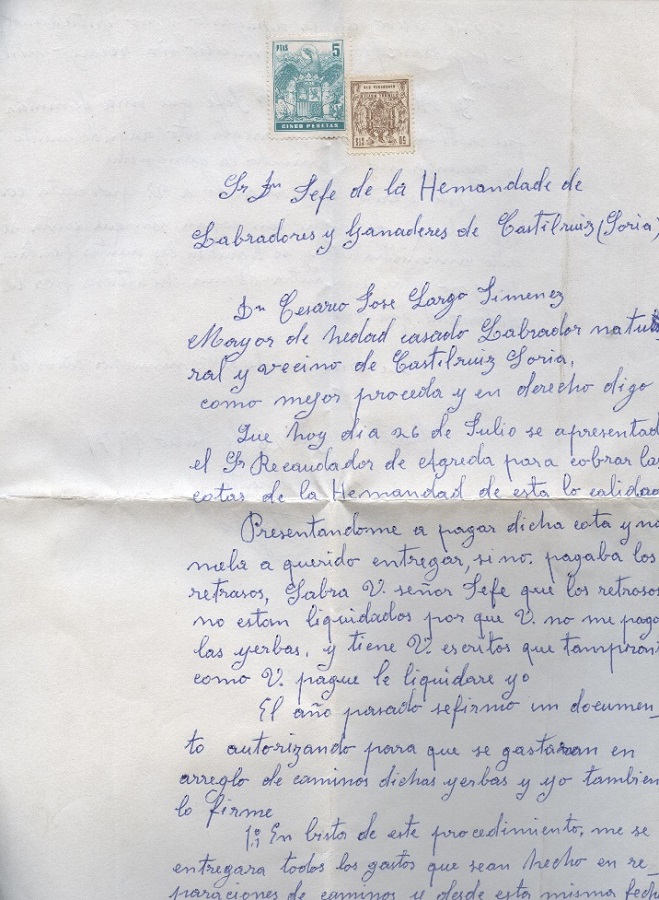 PTAS 5
CINCO PESETAS
Sr Dn Jefe de la Hemandade de
Labradores y Ganaderes de Castilruiz (Soria)
Dn Cesario Jose Largo Jimenez
Mayor de hedad casado Labrador natu
ral y vecino de Castilruiz Soria,
como mejor proceda y en derecho digo
Que hoy dia 26 de Julio se apresentad
el Sr Recaudador de Agreda para cobrar las
cotas de la Hemandad de esta lo calidad
Presentandome a pagar dicha cota y no
mela a querido entregar, si no. pagaba los
retrasos, Sabra V. señor Jefe que los retrosos
no estan liquidados por que V. no me pago
las yerbas, y tiene V. escritos que
como V. pague le liquidare yo
El año pasado sefirmo un documen
to autorizando para que se gastaran en
arreglo de caminos dichas yerbas y yo tambien
lo firme
1º En bista de este procedimiento, me se
entregara todos los gastos que sean hecho en re
paraciones de caminos y desde esta misma fech